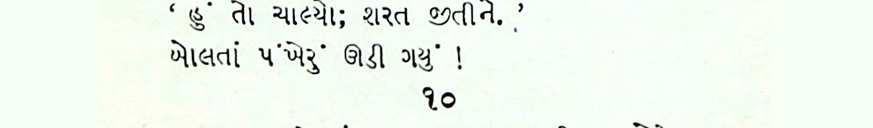 ‘ હું તો ચાલ્યો; શરત જીતીને. ’
બોલતાં પંખેરું ઊડી ગયું !
૧૦